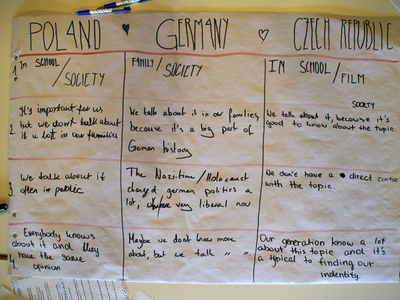 POLAND GERMANY CZECH REPUBLIC
1 In SCHOOL / SOCIETY
FAMILY / SOCIETY
IN SCHOOL / FILM
SOCIETY
2 It's important for us
but we don't talk about
it a lot in our families
We talk about it in our families,
because it's a big part of
German history
We talk about it, because it's
good to know about the topic
3 We talk about it
often in public
The Nazi-time / Holocaust
changed german politics a
lot, very liberal now
We don't have a direct contact
with the topic.
4. Everybody knows
about it and they
have the same
opinion
Maybe we don't know more
about, but we talk " "
Our generation know a lot
about this topic and it's
a typical to finding our
indentity.